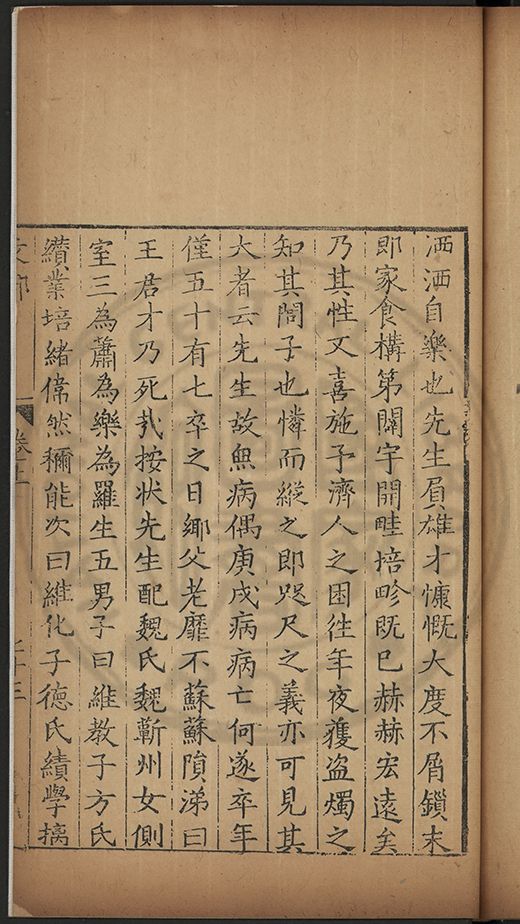 洒洒自樂也先生負雄才慷慨大度不屑鎖末
即家食構第闢宇開畦培畛既已赫赫宏遠矣
乃其性又喜施予濟人之困徃年夜獲盗燭之
知其閻子也憐而縱之即咫尺之義亦可見其
大者云先生故無病偶庚戌病病亡何遂卒年
僅五十有七卒之日鄉父老靡不蘇蘇隕涕曰
王君才乃死㢤按状先生配魏氏魏蘄州女側
室三為蕭為樂為羅生五男子曰維教子方氏
纘業培緒偉然穪能次曰維化子德氏績學摛
卷十二